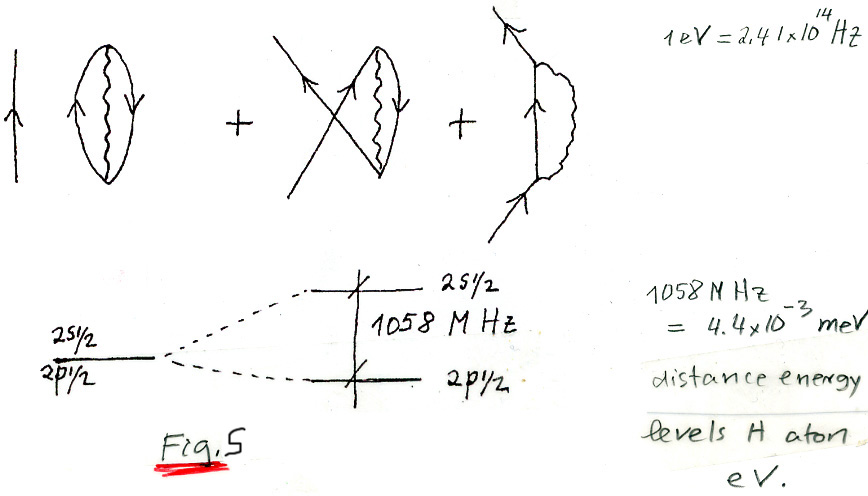 1 eV = 2,41 x 10^14 Hz
+ +
2S1/2
1058 M Hz
2S1/2
2P1/2
2p1/2
1058 M Hz
= 4.4 x 10^-3 meV
distance energy
levels H aton
eV.
Fig.5